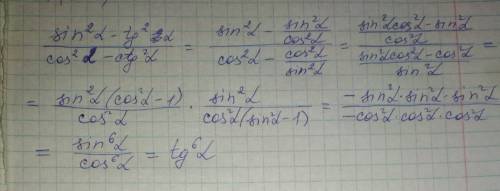 (sin²α - tg²α)/(cos²α - ctg²α) = (sin²α - sin²α/cos²α)/(cos²α - cos²α/sin²α) = ((sin²α cos²α - sin²α)/cos²α)/((sin²α cos²α - cos²α)/sin²α) =
= sin²α (cos²α - 1)/cos²α · sin²α/(cos²α (sin²α - 1)) = (-sin²α · sin²α · sin²α)/(-cos²α · cos²α · cos²α)
= sin⁶α/cos⁶α = tg⁶α